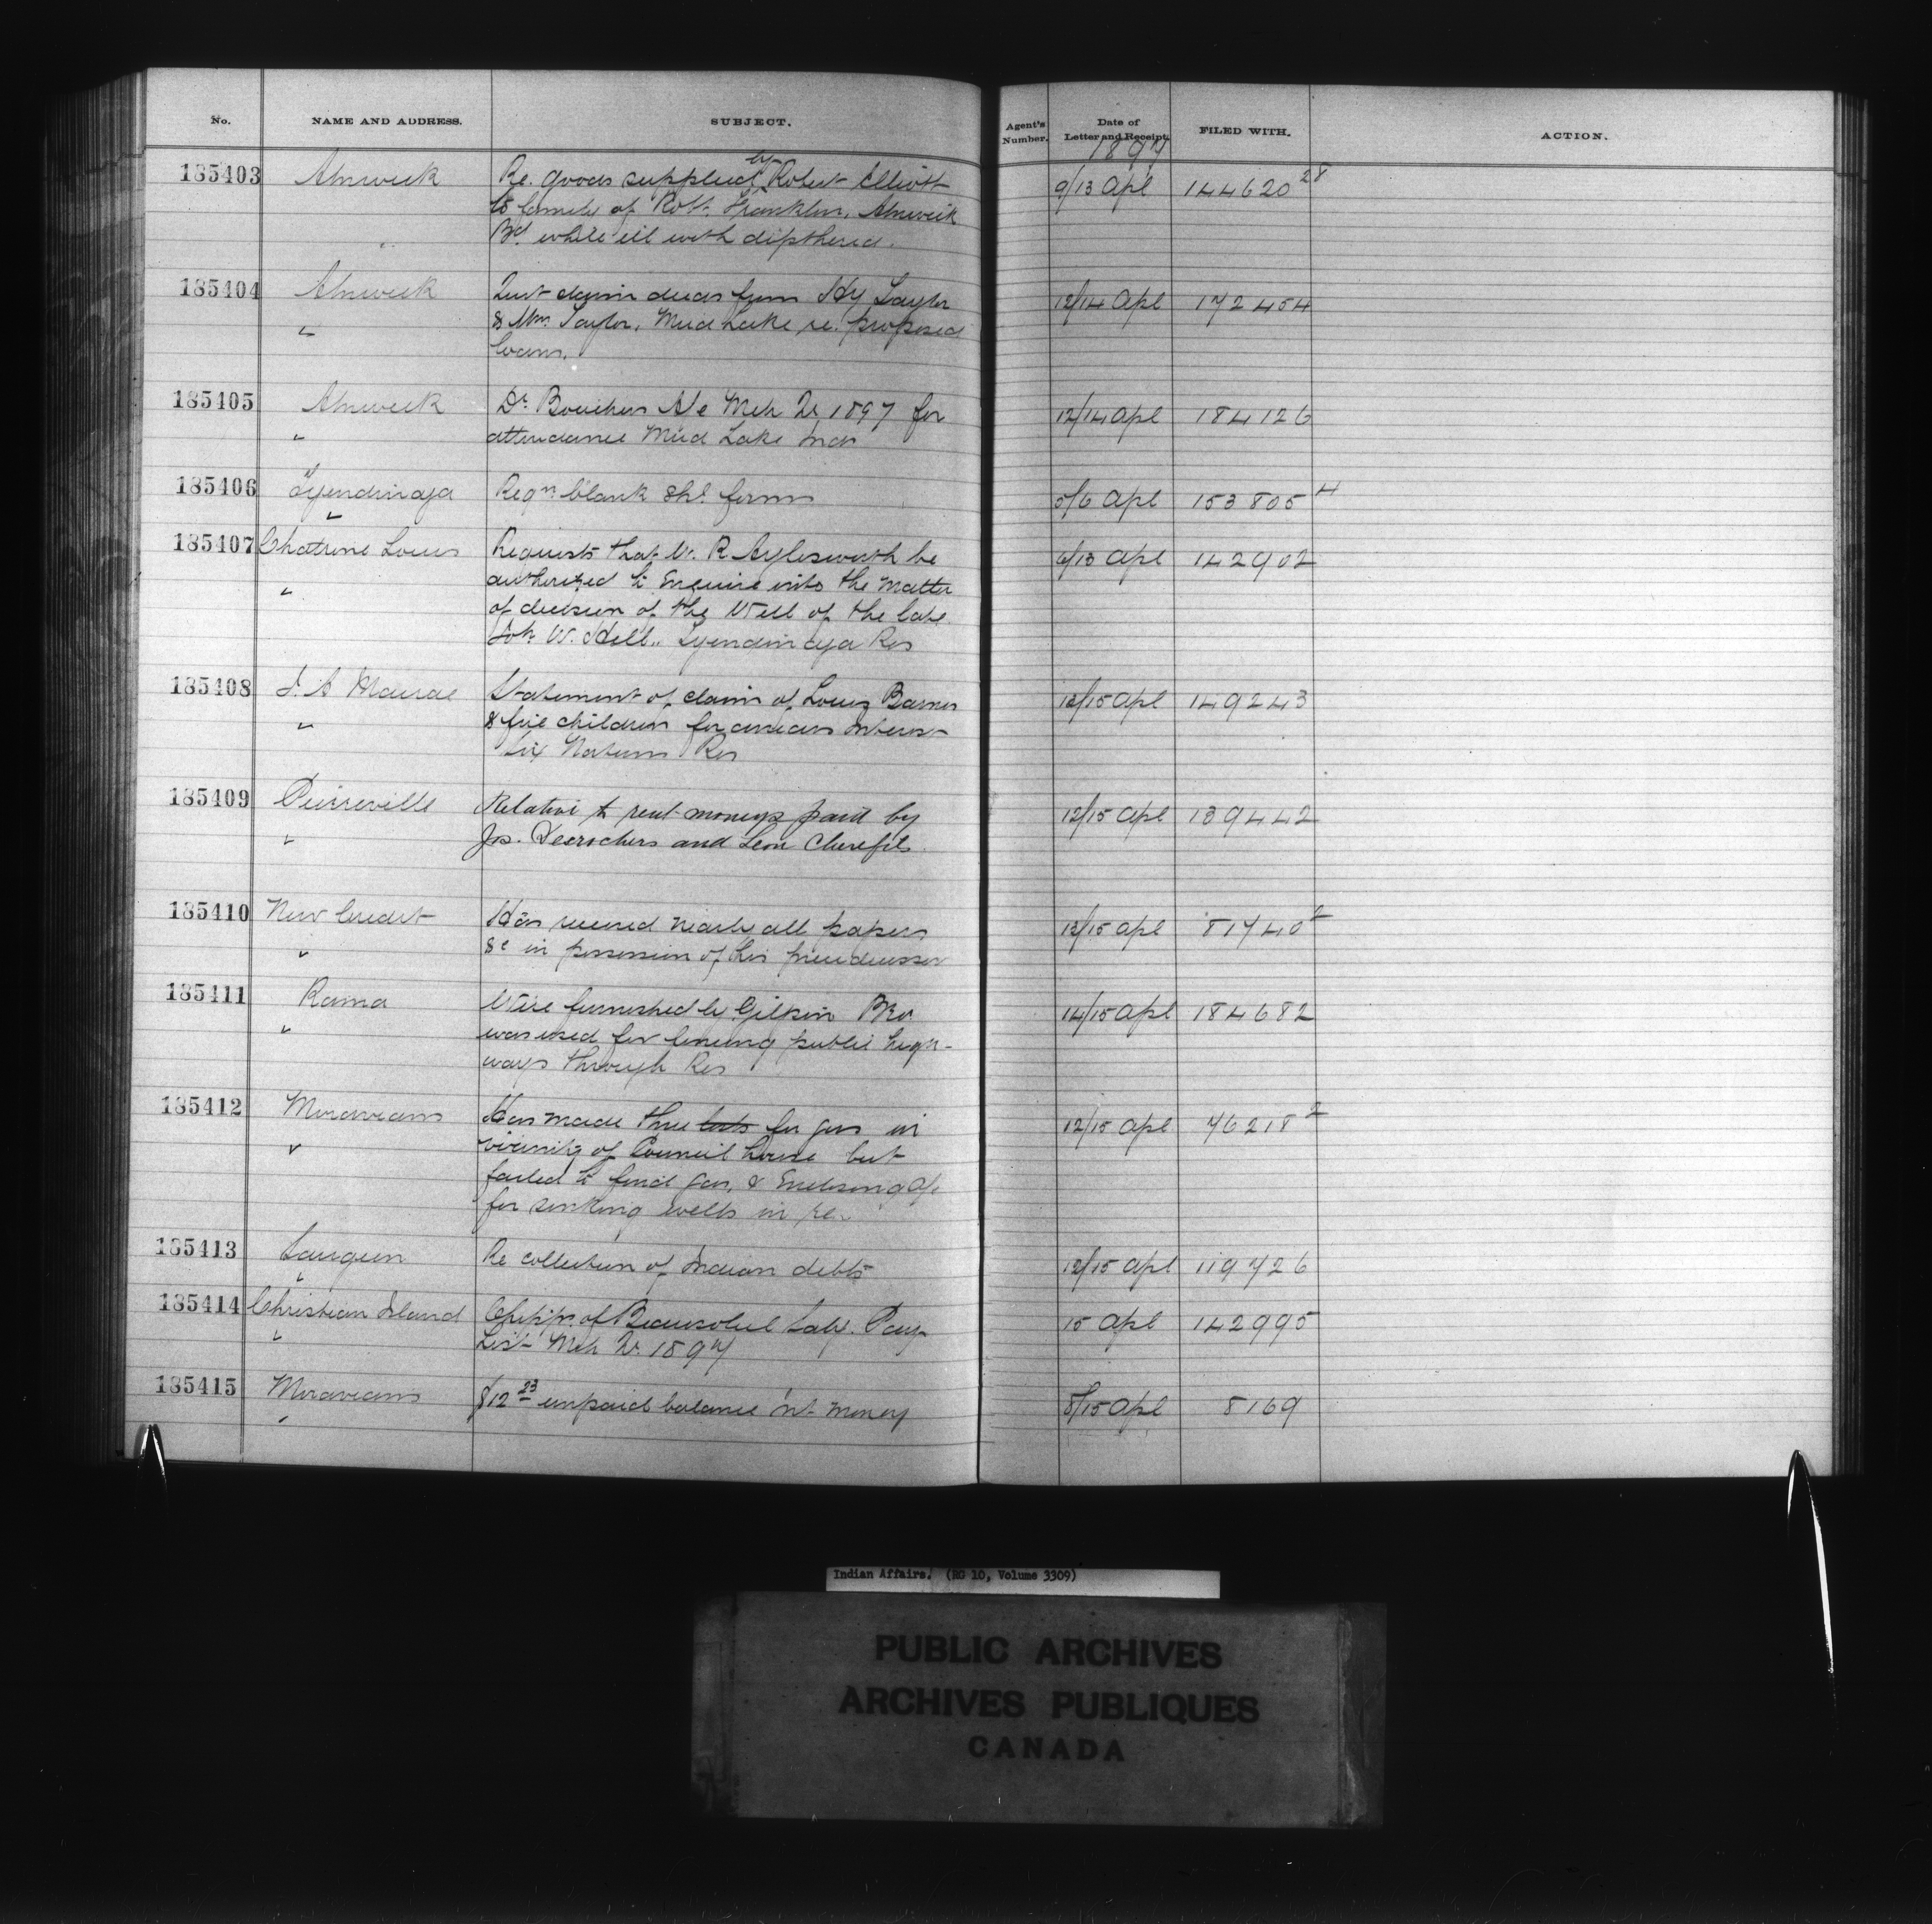 No. NAME AND ADDRESS. SUBJECT. Agent's Number. Date of Letter and Receipt. FILED WITH. ACTION.
1897
185403 Alnwick Re. goods supplied by Robert Elliott 9/13 Apl 144620 28
to family of Robt. Franklin, Alnwick
Bd. while ill with dipthena.
185404 Alnwick Quit claim deeds from Hy Taylor 12/14 Apl 172454
" & Wm. Taylor, Mud Lake re. proposed
loans.
185405 Alnwick Dr. Bouchers A/c Mch Qr 1897 for 12/14 Apl 184126
" attendance Mud Lake Inds
185406 Tyendinaga Reqn. blank forms 5/6 Apl 153805 4
"
185407 Louis Requests that W. R Aylesworth be 6/13 Apl 142902
" authorized to enquire into the matter
of division of the Will of the late
Joh. W. Hill. Tyendinaga Res
185408 Statement of claim of Barnes 13/15 Apl 149243
" & five children for arrears interest
Six Nations Res
185409 Pierreville Relative to rent moneys paid by 12/15 Apl 139442
" Jos. Desrochers and Leon Cherefils.
185410 New Credit Has received nearly all papers 13/15 Apl 81740 2
" &c in possession of his predecessor
185411 Rama Wire furnished by Gilpin Bro. 14/15 Apl 184682
" was used for fencing public high-
ways through Res
185412 Moravians Has made three tests for gas in 12/15 Apl 76218 2
" vicinity of Council house but
failed to find gas, & Enclosing A/c
for sinking wells in re.
185413 Saugeen Re collection of Indian debts 12/15 Apl 119726
"
185414 Christian Island Chipps. of Beausoleil Saly. Pay 15 Apl 142995
" List Mch Qr. 1897
185415 Moravians $12 23 unpaid balance int money 8/15 Apl 8169
"
Indian Affairs. (RG 10, Volume 3309)
PUBLIC ARCHIVES
ARCHIVES PUBLIQUES
CANADA